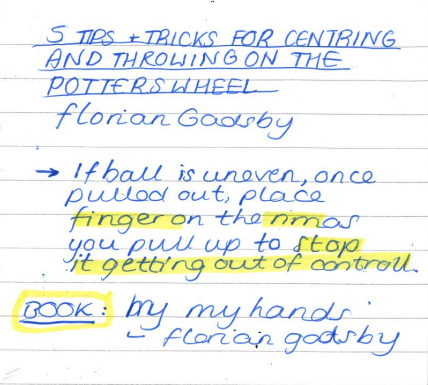 5 TIPS + TRICKS FOR CENTRING
AND THROWING ON THE
POTTERS WHEEL
florian Gadsby
→ If ball is uneven, once
pulled out, place
finger on the rim as
you pull up to stop
it getting out of controll.
BOOK: by my hands
- florian gadsby